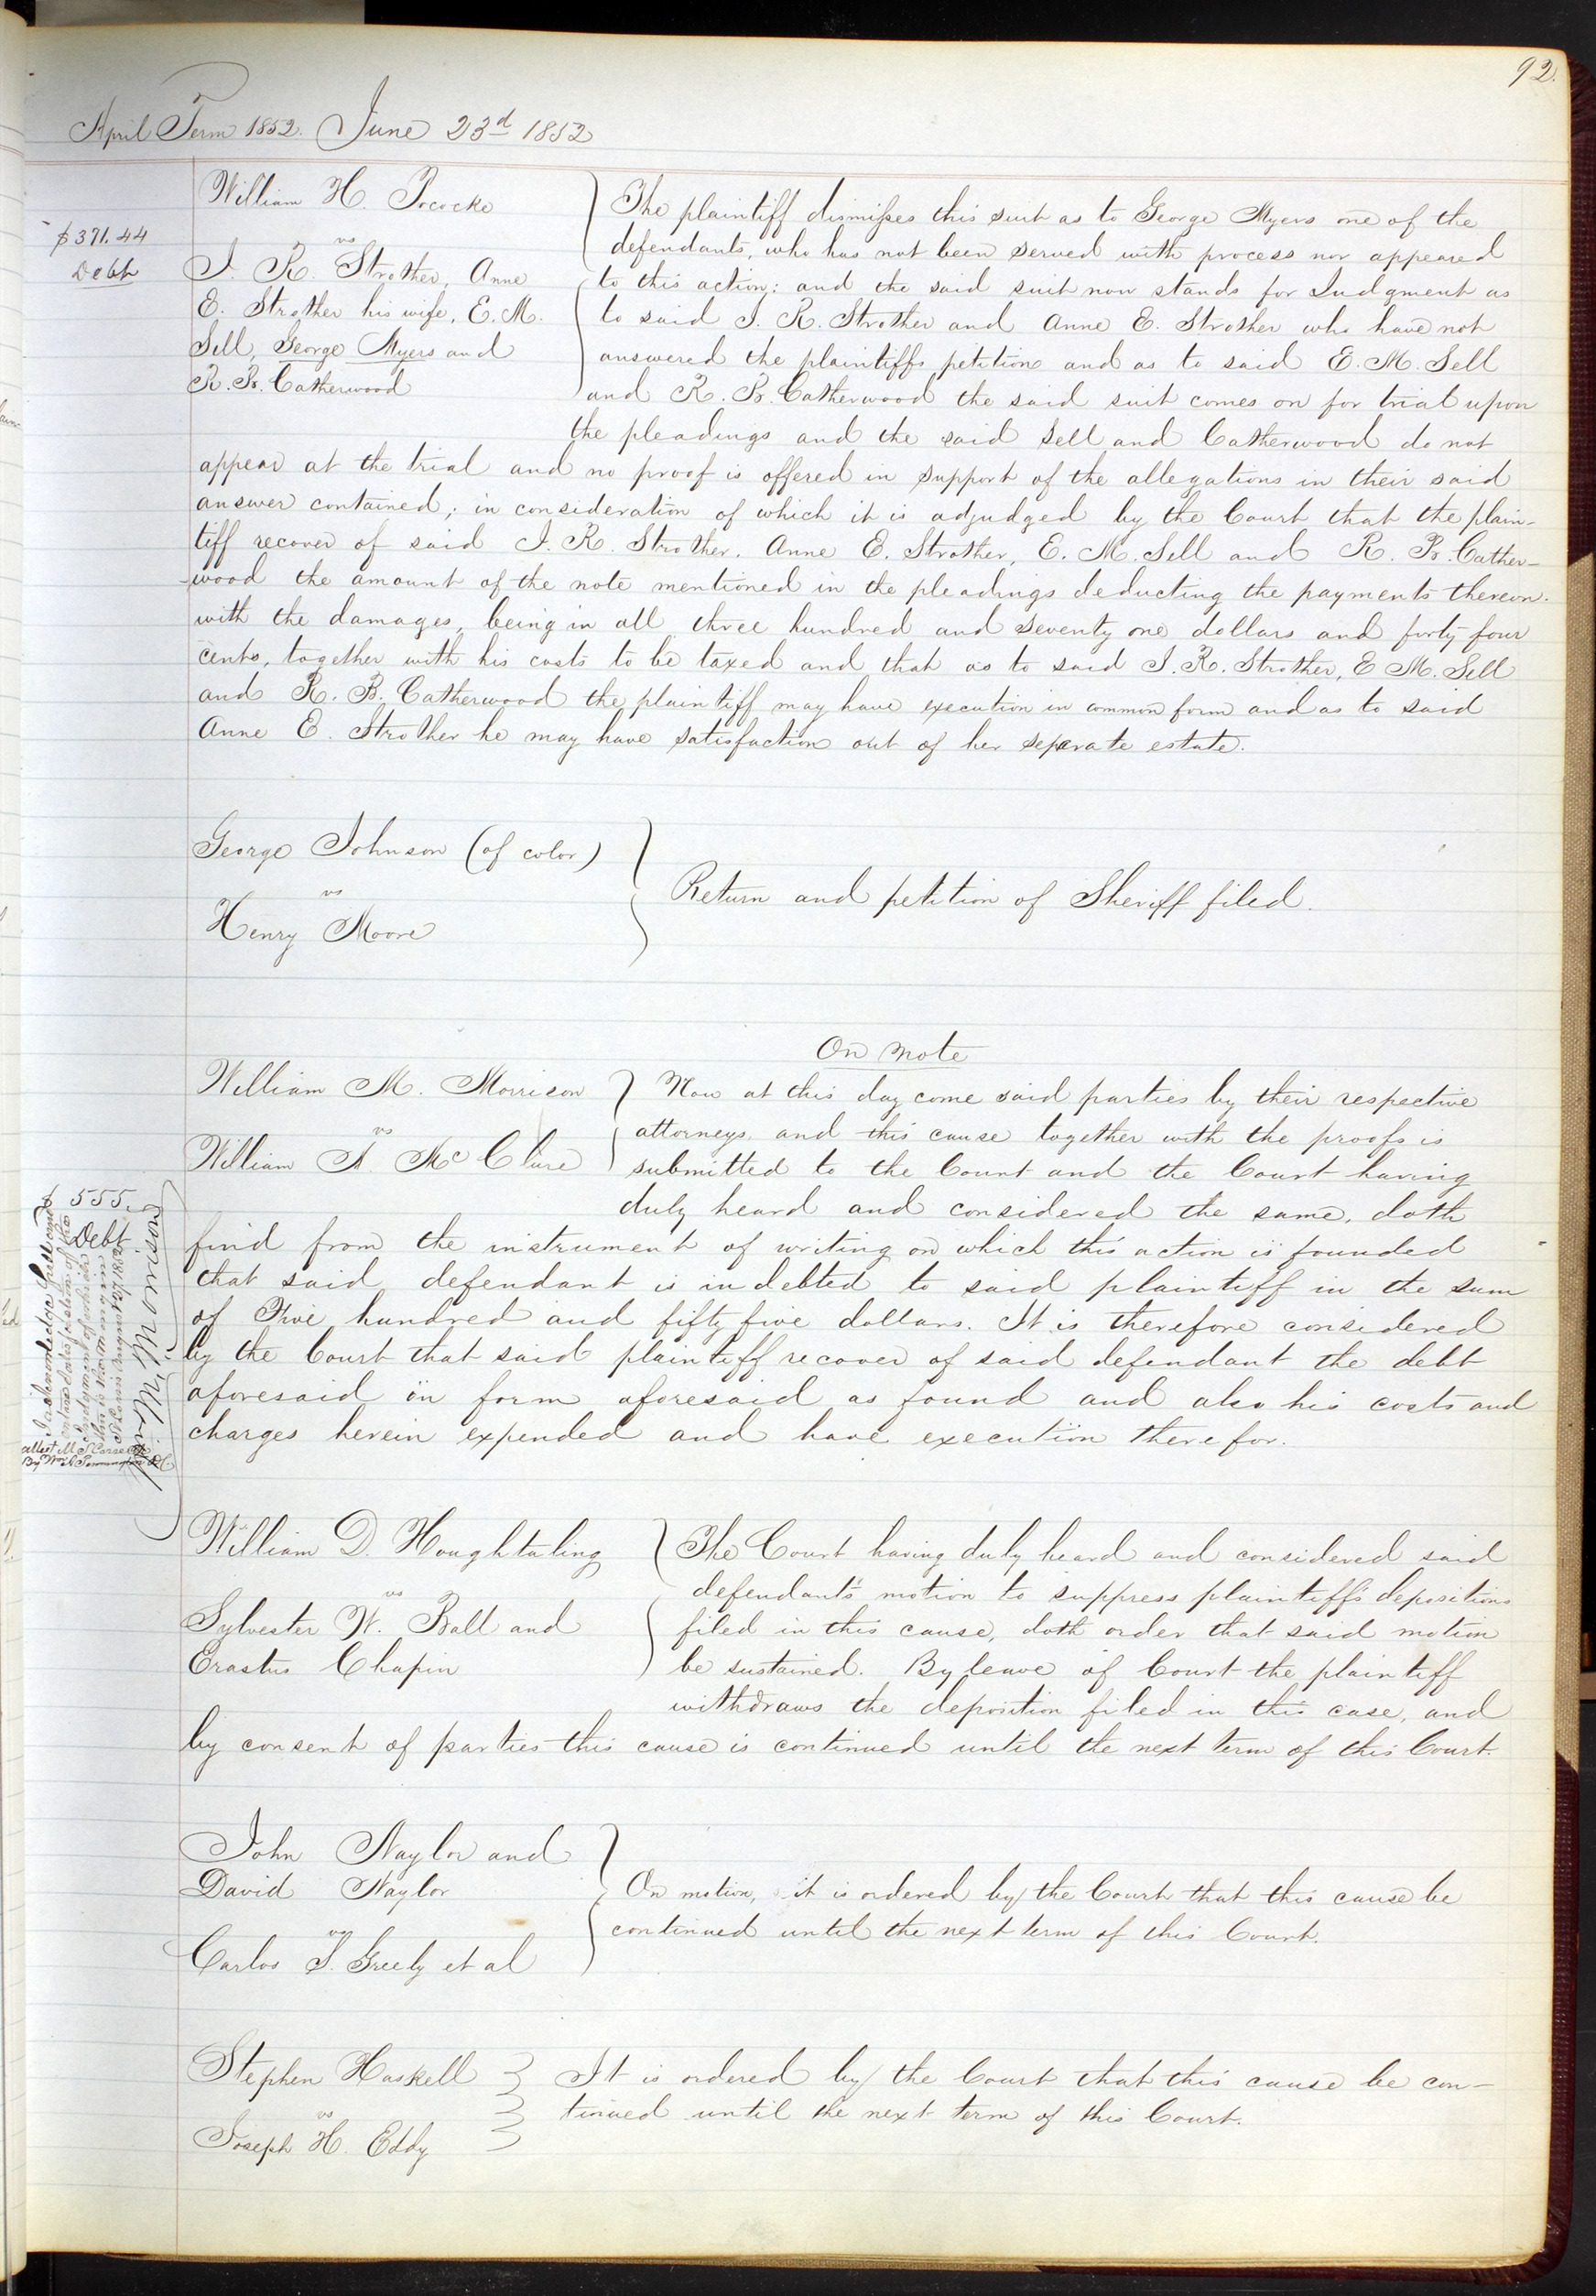 92.
April Term 1852. June 23d 1852
William H. Pococke
vs
J. R. Strother, Anne
E. Strother his wife, E. M.
Sell, George Myers and
R. B. Catherwood
$371.44
Debt
The plaintiff dismisses this suit as to George Myers one of the
defendants, who has not been served with process nor appeared
to this action: and the said suit now stands for Judgment as
to said J. R. Strother and Anne E. Strother who have not
answered the plaintiffs petition and as to said E. M. Sell
and R. B. Catherwood the said suit comes on for trial upon
the pleadings and the said Sell and Catherwood do not
appear at the trial and no proof is offered in support of the allegations in their said
answer contained; in consideration of which it is adjudged by the Court that the plain-
tiff recover of said J. R. Strother, Anne E. Strother, E. M. Sell and R. B. Cather-
wood the amount of the note mentioned in the pleadings deducting the payments thereon.
with the damages, being in all three hundred and seventy one dollars and forty four
cents, together with his costs to be taxed and that as to said J. R. Strother, E M. Sell
and R. B. Catherwood the plaintiff may have execution in common form and as to said
Anne E. Strother he may have satisfaction out of her separate estate.
George Johnson (of color)
vs
Henry Moore
Return and petition of Sheriff filed.
On note
William M. Morrison
vs
William A McClure
Now at this day come said parties by their respective
attorneys and this cause together with the proofs is
submitted to the Court and the Court having
duly heard and considered the same, doth
find from the instrument of writing on which this action is founded
that said defendant is indebted to said plaintiff in the sum
of Five hundred and fifty five dollars. It is therefore considered
by the Court that said plaintiff recover of said defendant the debt
aforesaid in form aforesaid as found and also his costs and
charges herein expended and have execution therefor.
$555.
Debt
I acknowledge full and
entire satisfaction of the
Judgment of which
this is the margin
St Louis August 1852
Wm. M. Morrison
attest M S Cerre Clk
By Wm A Pennington DC
William D. Houghtaling
vs
Sylvester W. Ball and
Erastus Chapin
The Court having duly heard and considered said
defendant's motion to suppress plaintiff's depositions
filed in this cause, doth order that said motion
be sustained. By leave of Court the plaintiff
withdraws the deposition filed in this case, and
by consent of parties this cause is continued until the next term of this Court.
John Naylor and
David Naylor
vs
Carlos S. Greely et al
On motion, it is ordered by the Court that this cause be
continued until the next term of this Court.
Stephen Haskell
vs
Joseph H. Eddy
It is ordered by the Court that this cause be con-
tinued until the next term of this Court.